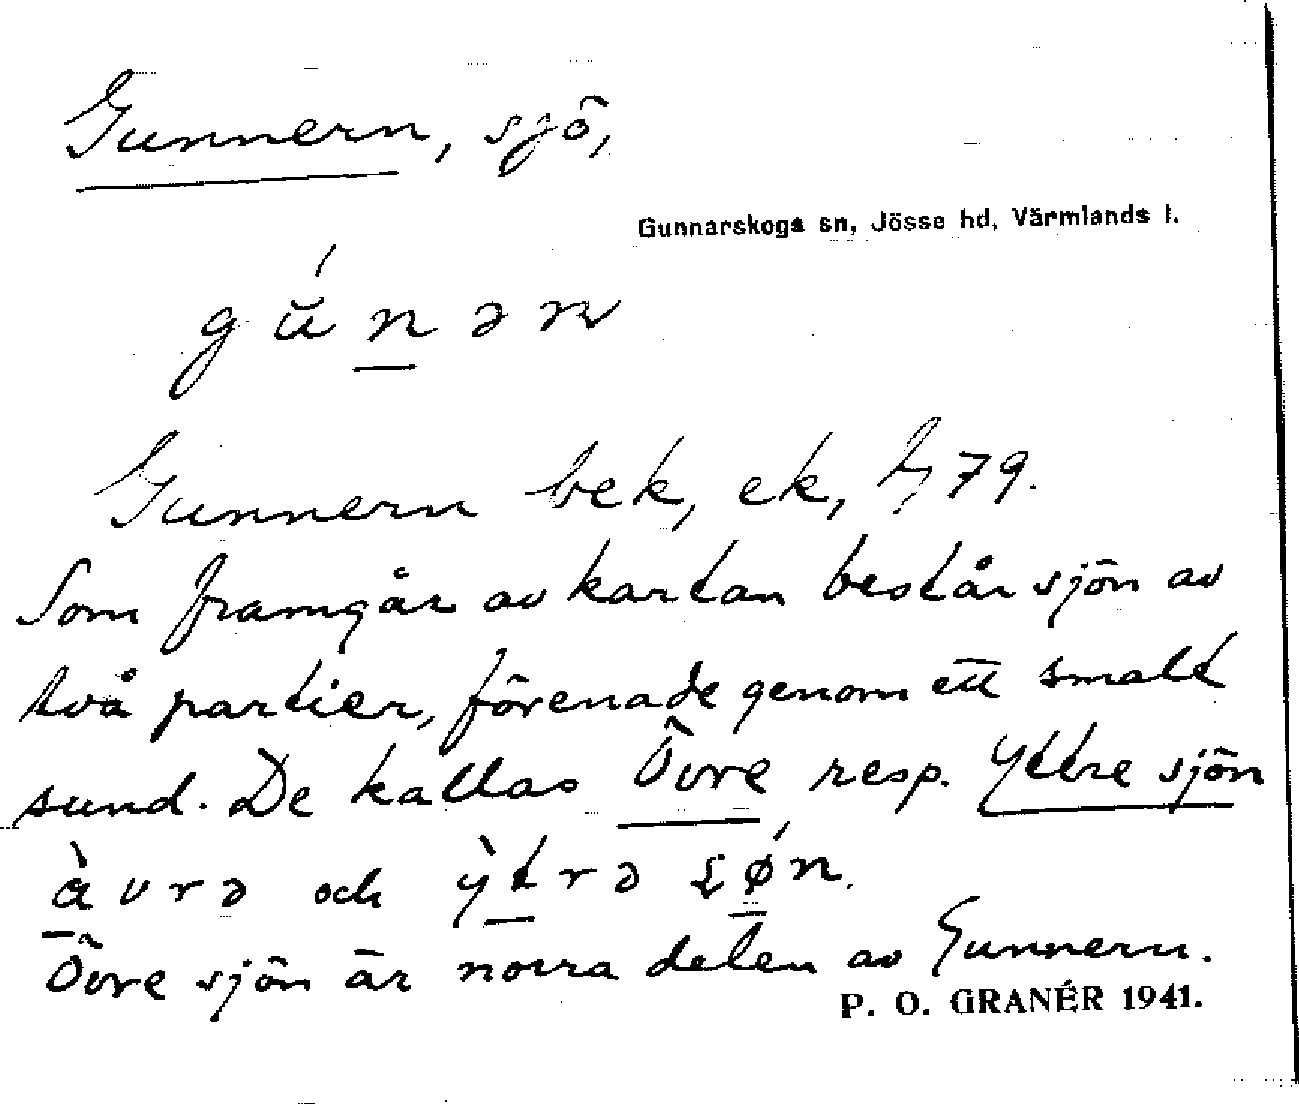 Gunnern, sjö,
Gunnarskogs sn, Jösse hd, Värmlands l.
gú̆n̲ən
Gunnern bek, ek, h 79.
Som framgår av kartan består sjön av
två partier, förenade genom ett smalt
sund. De kallas Övre resp. Yttre sjön
à̲vrə och ỳt̲rə ʂǿ̲n.
Övre sjön är norra delen av Gunnern.
P. O. GRANÉR 1941.